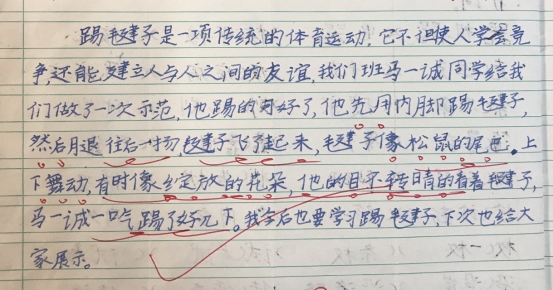 踢毽子是一项传统的体育运动,它不但使人学会竞
争,还能建立人与人之间的友谊,我们班马一诚同学给我
们做了一次示范,他踢的可好了,他先用内脚踢毽子,
然后月退往后一扬,毽子飞了起来,毽子像松鼠的尾巴。上
下舞动,有时像绽放的花朵,他的目不转睛的看着毽子,
马一诚一口气踢了好几下。我学后也要学习踢毽子,下次也给大
家展示。